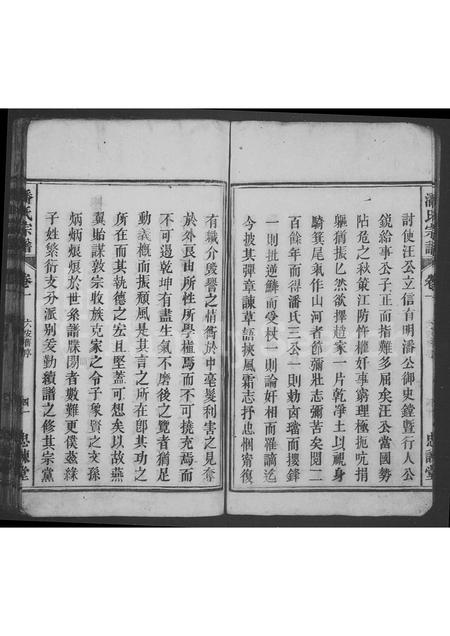 討使汪公立信有明潘公御史鏜暨行人公
鋭給事公子正而指難多屈矣汪公當國勢
阽危之秋策江防忤權奸事窮理極扼吭捐
軀猶振乚然欲擇趙家一片乾净土以視身
騎箕尾氣作山河者節彌壯志彌苦矣閱二
百餘年而得潘氏三公一則勅鹵璫而攖鋒
一則批逆鱗而受杖一則論奸相而罹謫迄
今披其彈章諫草語挾風霜志抒忠悃甯復
有職介毀譽之情衡於中毫髮利害之見奪
於外良由所性所學植焉而不可撓充焉而
不可遏乾坤有盡生氣不磨後之覽者猶足
動義概而振頽風是其言之所在卽其功之
所在而其執德之宏且堅蓋可想矣以故燕
翼貽謀敦宗收族克家之令子象賢之文孫
炳炳烺烺於世系譜牒閒者數難更僕茲緜
子姓繁衍支分派别爰勤續譜之修其宗黨
潘氏宗譜
卷一
忠諫堂